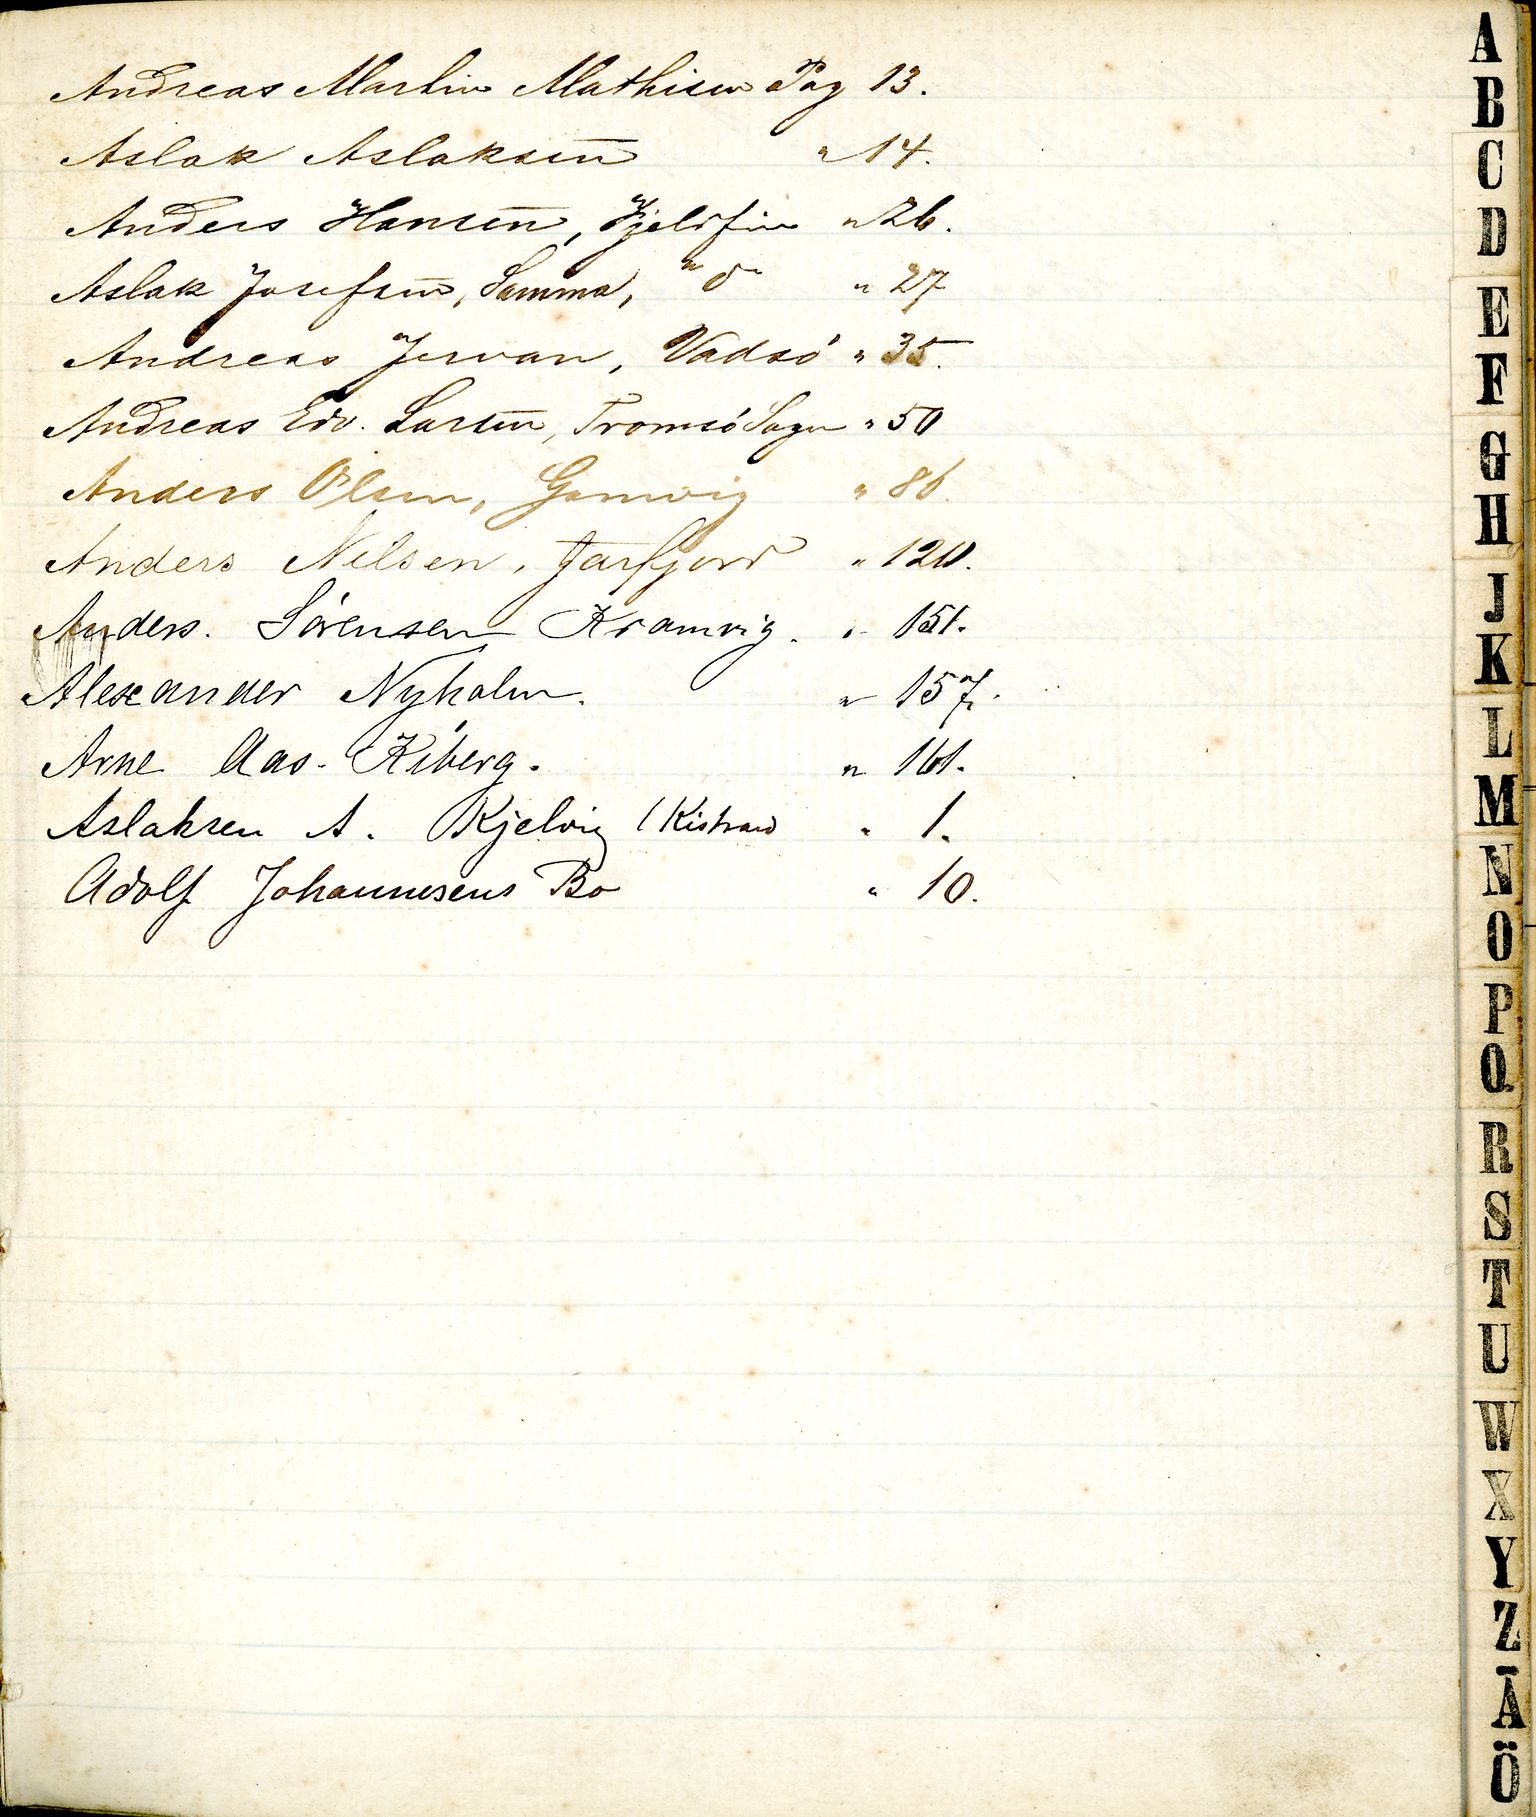 Andreas Martin Mathisen Pag 13.
Aslak Aslaksen " 14.
Anders Hansen, Fjeldfin " 26.
Aslak Josefsen, Somma, " d " " 27
Andreas Jervan, Vadsö " 35.
Andreas Edv. Larsen, Tromsö Sogn " 50
Anders Olsen, Gamvig " 86.
Anders Nilsen, Jarfjord " 120.
Anders. Sörensen Kramvig. " 151.
Alexander Nyholm. " 157.
Arne Aas. Kiberg. " 161.
Aslaksen A. Kjelvig (Kistrand " 1.
Adolf Johannesens Bo " 10.
A
B
C
D
E
F
G
H
J
K
L
M
N
O
P
Q
R
S
T
U
W
X
Y
Z
Ä
Ö